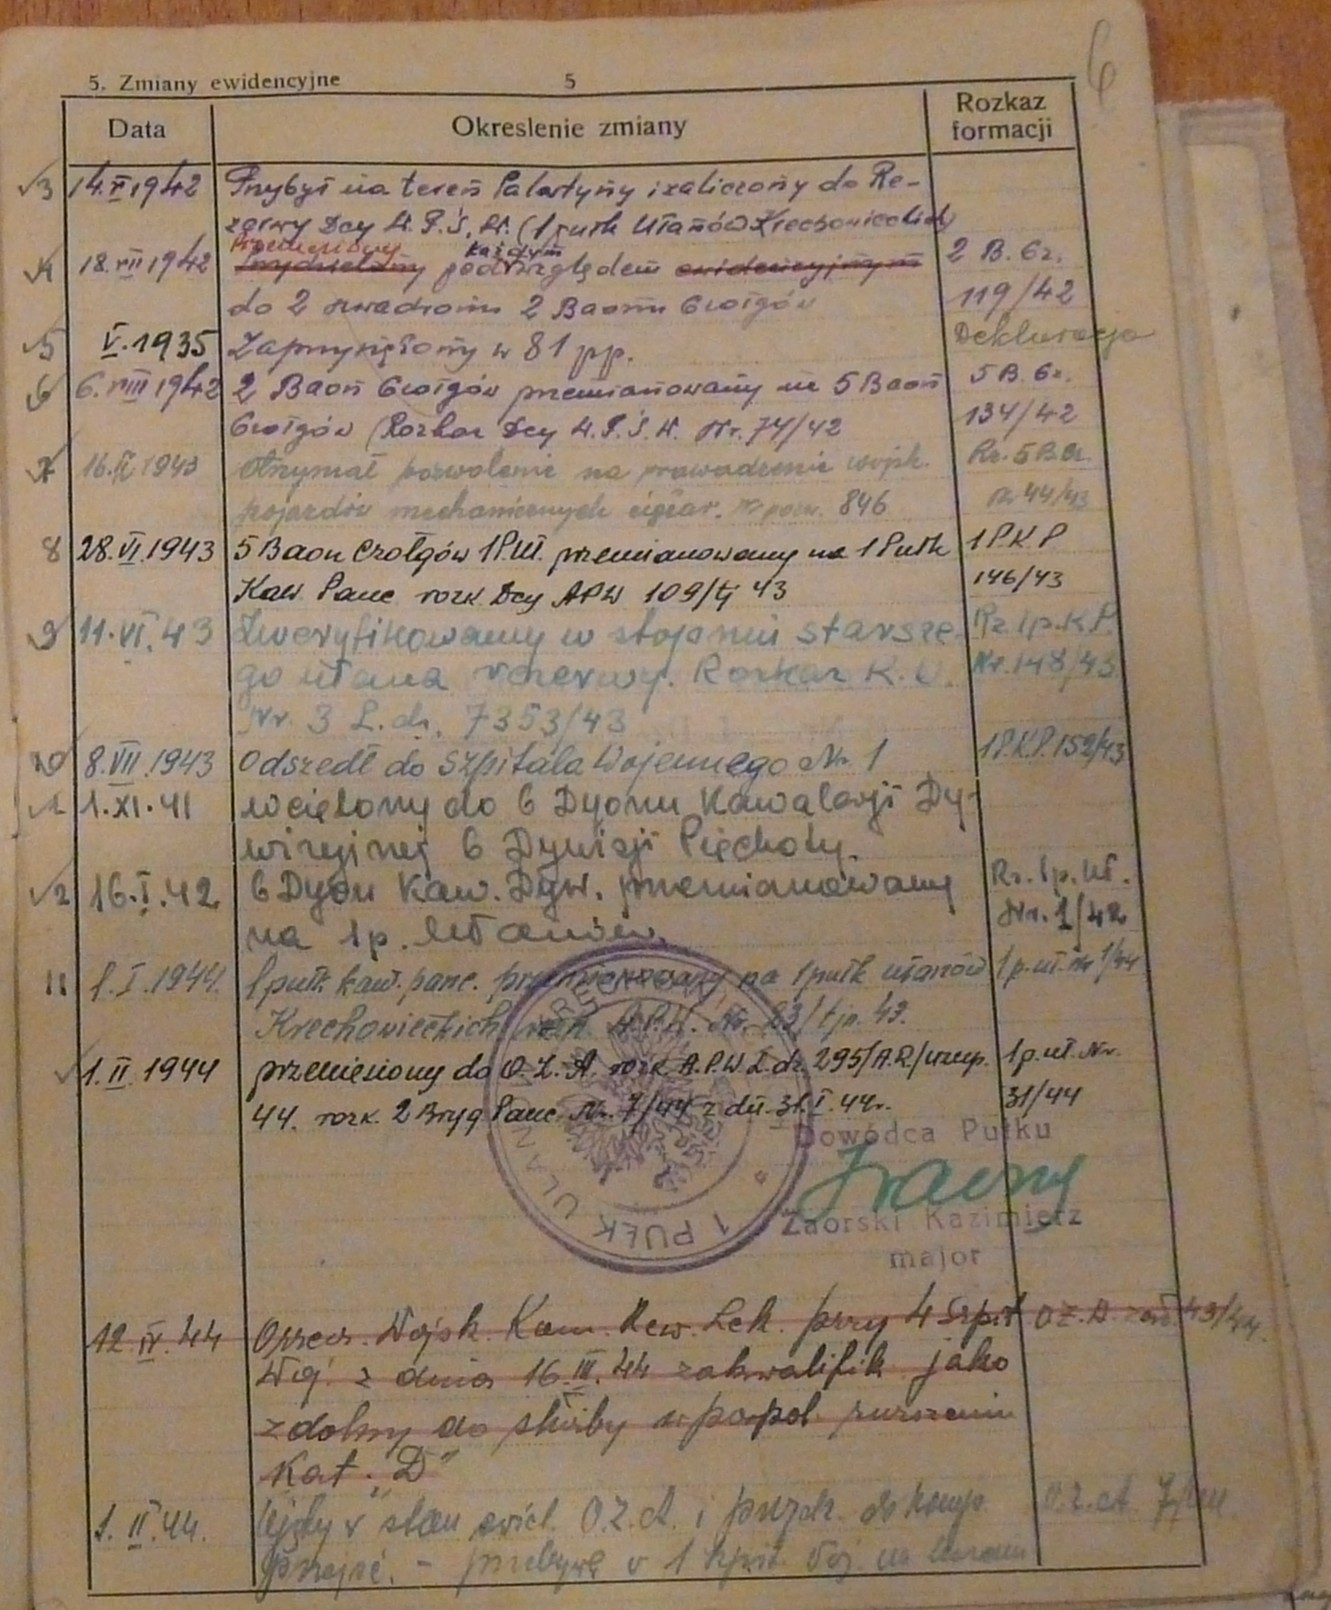 6
5. Zmiany ewidencyjne 5
Data Okreslenie zmiany Rozkaz formacji
3 14.V.1942 Przybył na tereń Palestyny i zaliczony do Re-
zerwy Dcy A.P.Ś.W. (1 pułk Ułanów Krechowieckich)
Przeniesiony każdym
4 18.VII 1942 Przydzielony pod względem ewidencyjnym 2 B. Cz.
do 2 szwadronu 2 Baonu Czołgów 119/42
5 V.1935 Zaprzysiężony w 81 pp. Deklaracja
6 6.VIII 1942 2 Baon Czołgów przemianowany na 5 Baon 5 B. Cz.
Czołgów (Rozkaz Dcy A.P.Ś.W. Nr. 74/42 134/42
7 16.II.1943 otrzymał pozwolenie na prowadzenie wojsk. Rz. 5 B.Cz.
pojazdów mechanicznych ciężar. Nr pozw. 846 Nr 44/43
8 28.VI.1943 5 Baon Czołgów 1P.Uł. przemianowany na 1 Pułk 1 P.K.P
Kaw Panc rozk Dcy APW 109/tj 43 146/43
9 11.VI.43 Zweryfikowany w stopniu starsze- Rz. 1p.K.P.
go ułana rezerwy. Rozkaz K.U. Nr. 148/43
Nr. 3 L.dz. 7353/43
10 8.VII.1943 Odszedł do Szpitala Wojennego Nr. 1 1P.K.P. 152/43
1 1.XI.41 wcielony do 6 Dyonu Kawalerji Dy-
wizyjnej 6 Dywizji Piechoty.
2 16.I.42 6 Dyon Kaw. Dyw. przemianowany Rz. 1p. uł.
na 1 p. Ułanów. Nr. 1/42
11 1.I.1944. 1 pułk kaw. panc. przemianowany na 1 pułk ułanów 1 p. uł. Nr 1/44
Krechowieckich rozk. A.P.W. Nr. 23/tjn. 43.
1.II 1944 przeniesiony do O.Z.A. rozk A.P.W L.dz. 295/A.R/uzup. 1p. uł. Nr.
44. rozk. 2 Bryg Panc. Nr. 7/44 z dn. 31.I.44r. 31/44
1 PUŁK UŁANÓW KRECHOWIECKICH
Dowódca Pułku
Zaorski Kazimierz
major
12.IV.44 Orzecz. Wojsk. Kom. Rew. Lek. przy 4 Szpit O.Z.A. 43/44.
Woj. z dnia 16.III.44 zakwalifik. jako
zdolny do służby w posp��l. ruszeniu
Kat. "D"
1.II.44. Ujęty w stan O.Z.A. i przydz. do komp. O.Z.A. 7/44
przejść. - przebywa w 1 szpit. Woj.